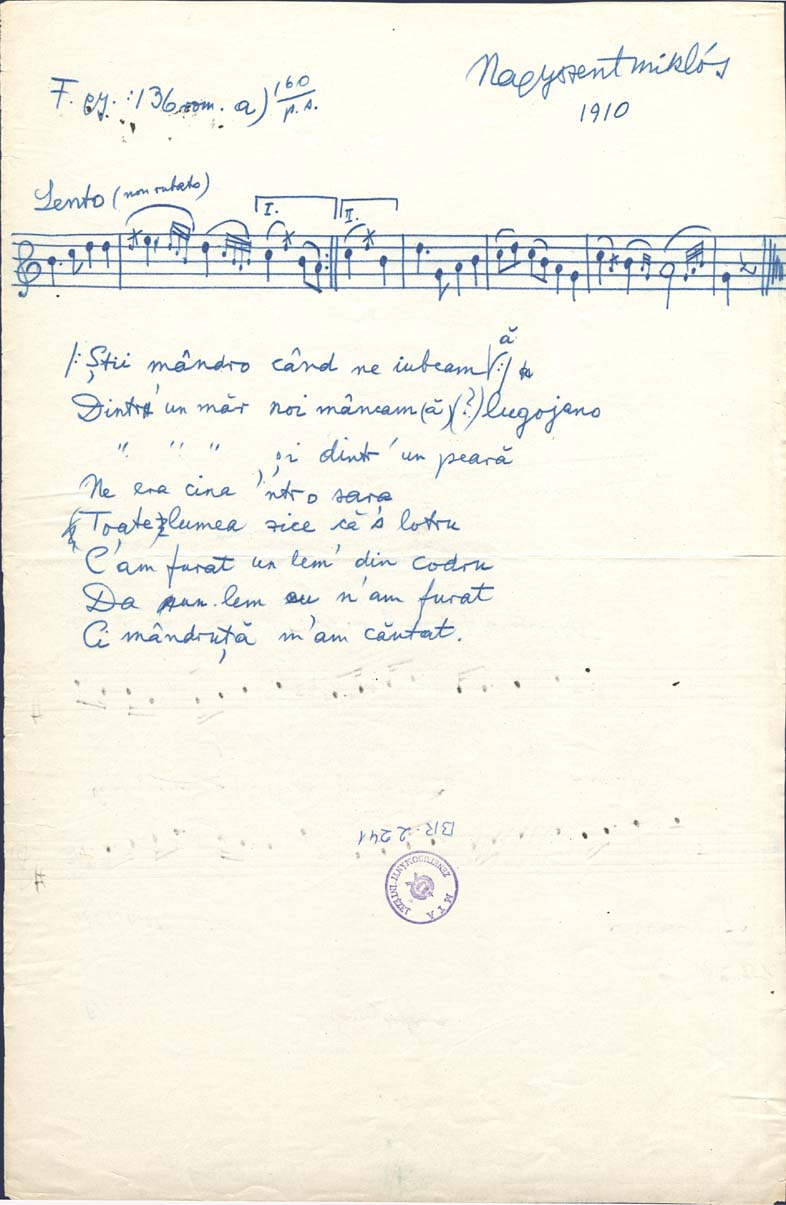 F. gy.: 136 rom. a) 160/p.s.
Nagyszentmiklós
1910
Lento (non rubato)
I. II.
/: Știi mândro când ne iubeam ă :/
Dintr'un măr noi mâncam (ă) (?) lugojano
" " " și dintr'un peară
Ne era cina 'ntr o sara
(Toate) lumea zice că's lotru
C'am furat un lem' din codru
Da lem eu n'am furat
Ci mândruță m'am căutat.
BR. 2241
MTA ZENETUDOMÁNYI INTÉZET